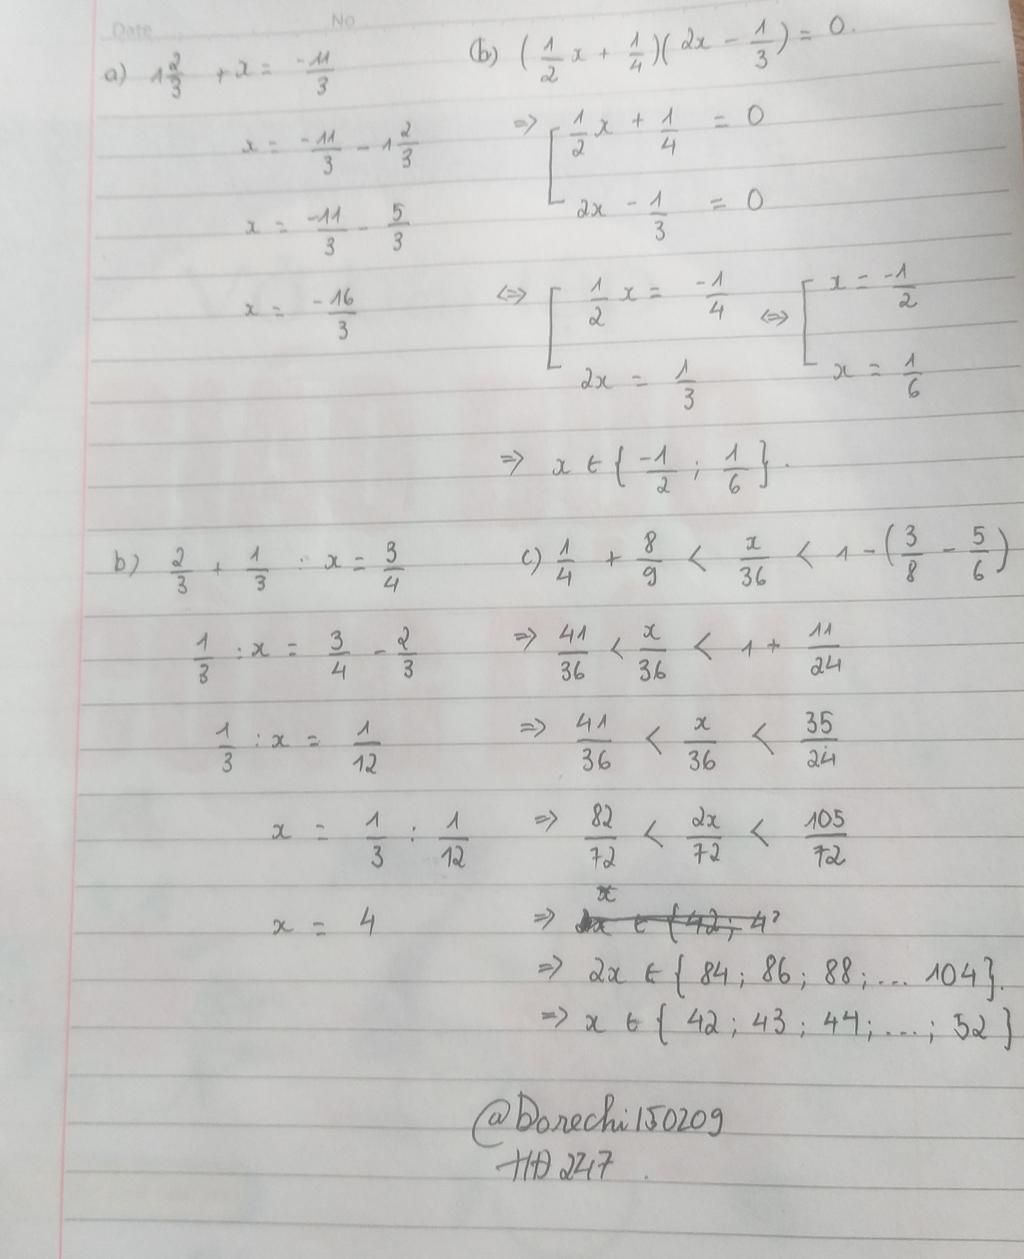 Date No
a) 1 2/3 + x = -11/3
x = -11/3 - 1 2/3
x = -11/3 - 5/3
x = -16/3
(b) (1/2 x + 1/4)(2x - 1/3) = 0.
=> [ 1/2 x + 1/4 = 0
2x - 1/3 = 0
<=> [ 1/2 x = -1/4 <=> [ x = -1/2
2x = 1/3 x = 1/6
=> x ∈ { -1/2 ; 1/6 }.
b) 2/3 + 1/3 : x = 3/4
1/3 : x = 3/4 - 2/3
1/3 : x = 1/12
x = 1/3 : 1/12
x = 4
c) 1/4 + 8/9 < x/36 < 1 - (3/8 - 5/6)
=> 41/36 < x/36 < 1 + 11/24
=> 41/36 < x/36 < 35/24
=> 82/72 < 2x/72 < 105/72
x
=> x ∈ { 42 ; 4
=> 2x ∈ { 84 ; 86 ; 88 ; ... 104 }.
=> x ∈ { 42 ; 43 ; 44 ; ... ; 52 }
@Dorechi150209
HĐ 247.